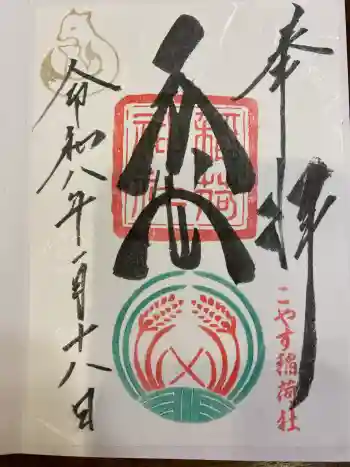 奉拝
稲荷
神社
こやす稲荷社
令和八年一月十八日